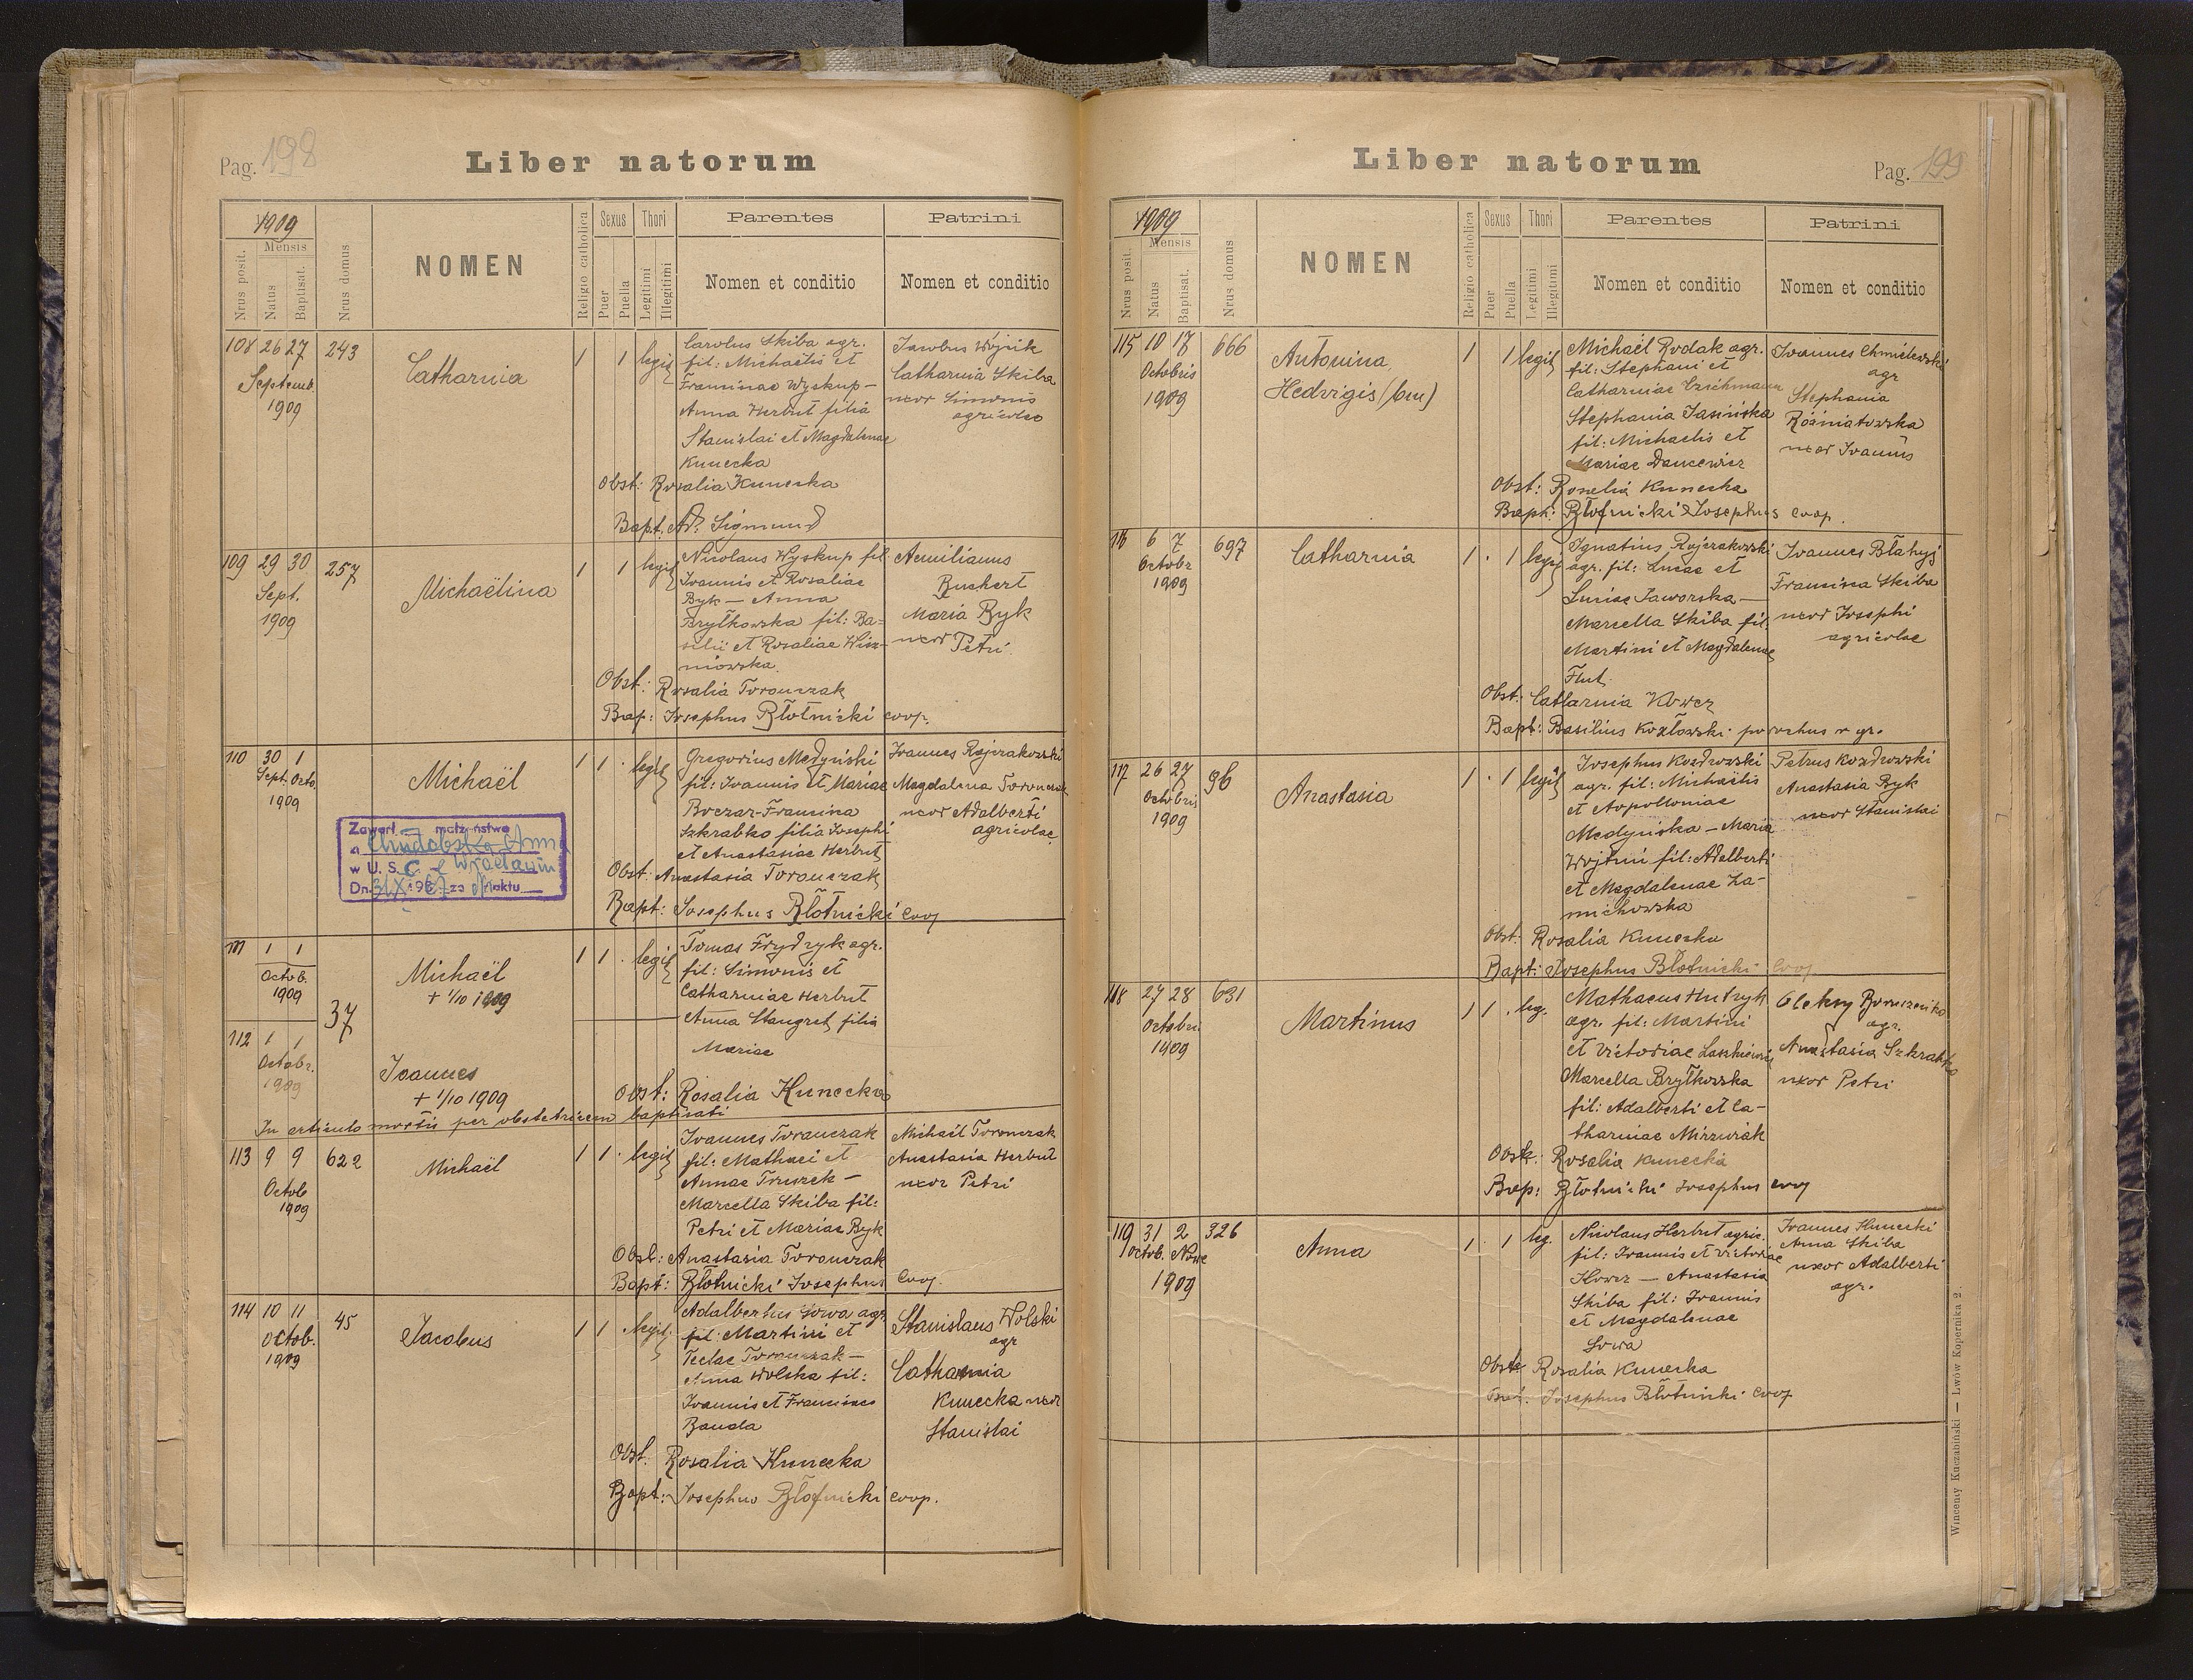 Pag. 198
Liber natorum
1909
Mensis
Nrus posit.
Natus
Baptisat.
Nrus domus
NOMEN
Religio catholica
Sexus
Puer
Puella
Thori
Legitimi
Illegitimi
Parentes
Nomen et conditio
Patrini
Nomen et conditio
108 26 27 243
Septemb.
1909
Catharina
1 1 legit
Carolus Skiba agr.
fil: Michaëlis et
Franciscae Wyskup —
Anna Herbut filia
Stanislai et Magdalenae
Kunecka
Jacobus Wojcik
Catharina Skiba
uxor Simonis
agricolae
Obst: Rosalia Kunecka
Bapt. A. Sigmund
109 29 30 257
Sept.
1909
Michaëlina
1 1 legit
Nicolaus Wyskup fil
Joannis et Rosaliae
Byk — Anna
Brytkowska fil: Ba-
silii et Rosaliae Wisz-
niowska.
Aemilianus
Buchert
Maria Byk
uxor Petri.
Obst: Rosalia Toronczak
Bap: Josephus Błotnicki coop.
110 30 1
Sept. Octo.
1909
Michaël
1 1 . legit
Gregorius Medyński
fil: Joannis et Mariae
Boczar - Francisca
Szkrabko filia Josephi
et Anastasiae Herbut
Joannes Rajzakowski
Magdalena Toronczak
uxor Adalberti
agricolae
Zawarł małżeństwo
w U. S. C.
Dn. za Nr aktu
Obst: Anastasia Toronczak
Bapt: Josephus Błotnicki Coop
111 1 1
Octob.
1909
37
Michaël
+ 1/10 1909
1 1 . legit
Tomas Frydryk agr.
fil: Simonis et
Catharinae Herbut
Anna Stangret filia
Mariae
112 1 1
Octobr.
1909
Joannes
+ 1/10 1909
Obst: Rosalia Kunecka
In articulo mortis per obstetricem baptisati
113 9 9 622
Octob
1909
Michaël
1 1 . legit
Joannes Toranczak
fil: Mathaei et
Annae Truszek —
Marcella Skiba fil:
Petri et Mariae Byk
Michaël Toronczak
Anastasia Herbut
uxor Petri
Obst: Anastasia Toronczak
Bapt: Błotnicki Josephus Coop.
114 10 11 45
Octob.
1909
Jacobus
1 1 . legit.
Adalbertus Sowa agr
fil: Martini et
Teclae Toronczak —
Anna Wolska fil:
Joannis et Franciscae
Banda
Stanislaus Wolski
agr
Catharina
Kunecka uxor
Stanislai
Obst: Rosalia Kunecka
Bapt: Josephus Błotnicki coop.
Liber natorum
Pag. 199
1909
Mensis
Nrus posit.
Natus
Baptisat.
Nrus domus
NOMEN
Religio catholica
Sexus
Puer
Puella
Thori
Legitimi
Illegitimi
Parentes
Nomen et conditio
Patrini
Nomen et conditio
115 10 17 666
Octobris
1909
Antonina,
Hedvigis (bin)
1 1 legit
Michaël Rudak agr.
fil: Stephani et
Catharinae
Stephania Jasińska
fil: Michaelis et
Mariae Dancewicz
Joannes Chmielewski
agr
Stephania
Rożniatowska
uxor Joannis
Obst: Rosalia Kunecka
Bapt: Błotnicki Josephus coop.
116 6 7 697
Octobr
1909
Catharina
1 . 1 legit
Ignatius Rajzakowski
agr. fil: Lucae et
Luciae Jaworska —
Marcella Skiba fil:
Martini et Magdalenae
Flut
Joannes Błahyj
Francisca Skiba
uxor Josephi
agricolae
Obst: Catharina Kowcz
Bapt: Basilius Kozłowski parochus r. gr.
117 26 27 96
Octobris
1909
Anastasia
1 . 1 legit
Josephus Kozdrowski
agr. fil: Michaëlis
et Appolloniae
Medyńska — Maria
Wojtun fil: Adalberti
et Magdalenae Za-
michowska
Petrus Kozdrowski
Anastasia Byk
uxor Stanislai
Obst: Rosalia Kunecka
Bapt: Josephus Błotnicki Coop
118 27 28 631
Octobri
1909
Martinus
1 1 . leg.
Mathaeus Hutzyk
agr. fil: Martini
et Victoriae
Marcella Brytkowska
fil: Adalberti et Ca-
tharinae Mirzwiak
Oleksy
agr.
Anastasia Szkrabko
uxor Petri
Obst: Rosalia Kunecka
Bap: Błotnicki Josephus coop
119 31 2 326
Octob. Nove
1909
Anna
1 . 1 leg.
Nicolaus Herbut agric.
fil: Joannis et Victoriae
Kowcz — Anastasia
Skiba fil: Joannis
et Magdalenae
Sowa
Joannes Kunecki
Anna Skiba
uxor Adalberti
agr.
Obst: Rosalia Kunecka
Bat: Josephus Błotnicki Coop
Wincenty Kuczabiński — Lwów Kopernika 2.